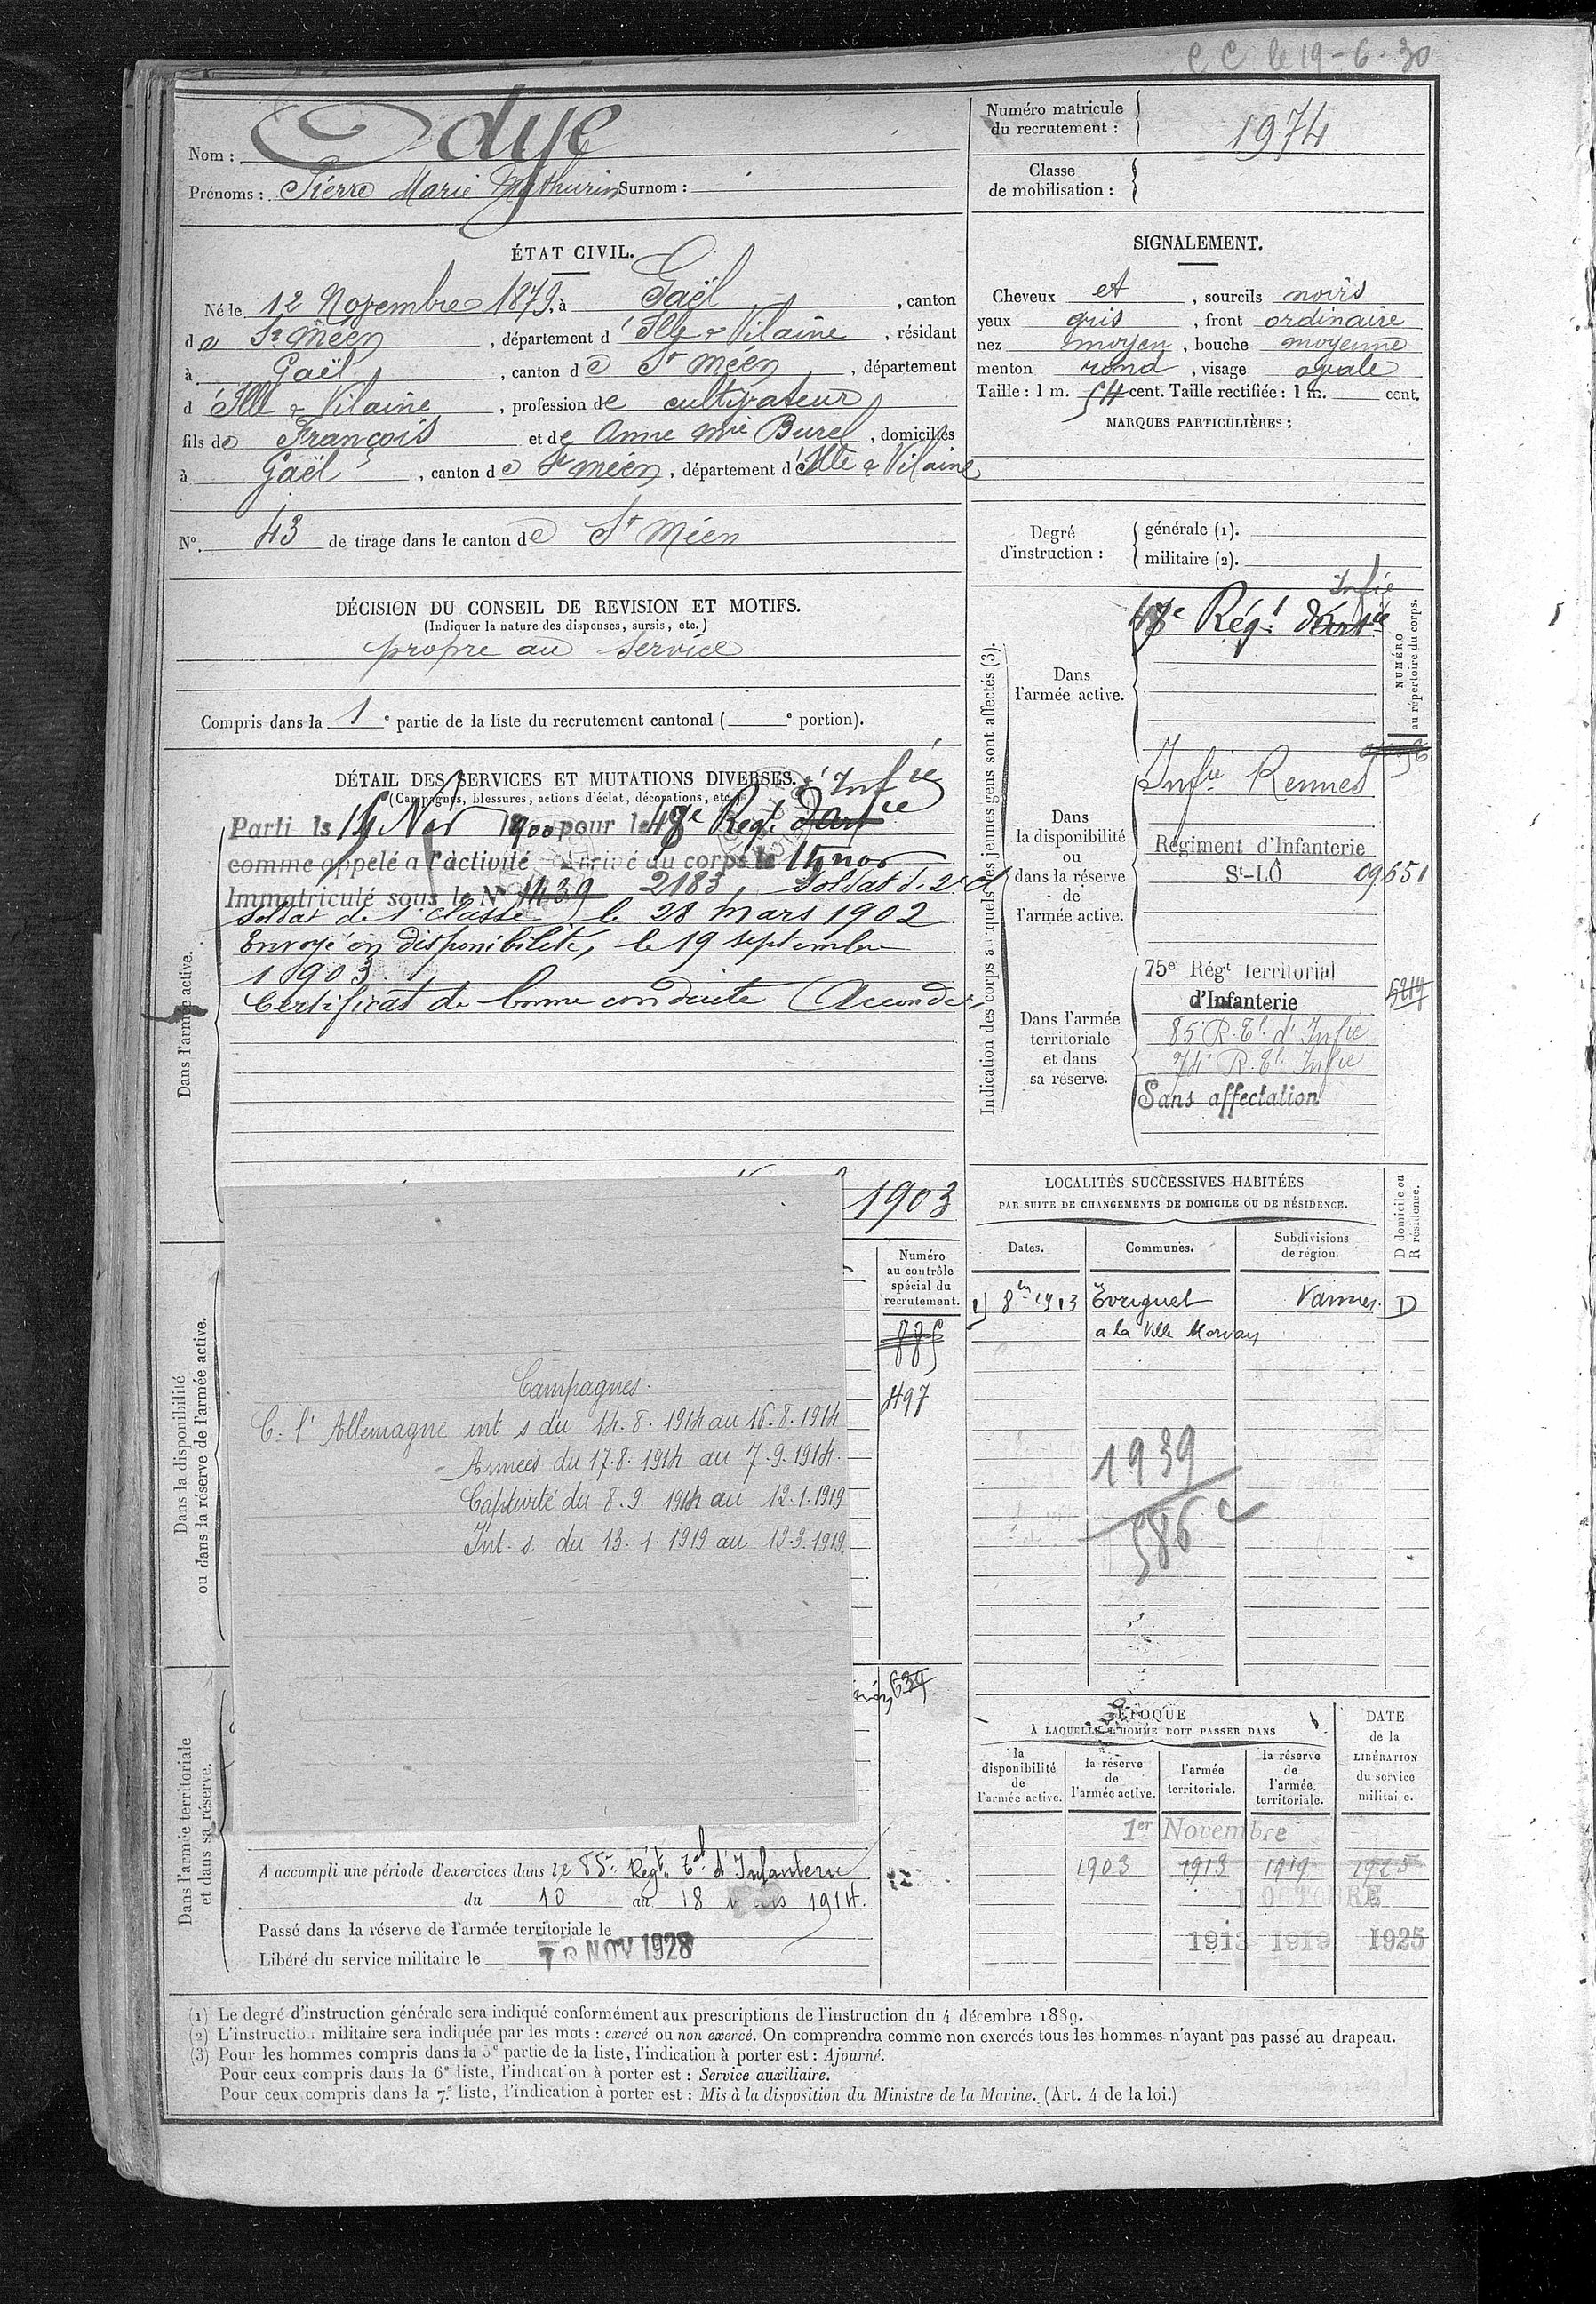 C C le 19-6-30
Nom : Odye
Prénoms : Pierre Marie Mathurin Surnom :
Numéro matricule
du recrutement : 1974
Classe
de mobilisation :
ÉTAT CIVIL.
Né le 12 Novembre 1879, à Gaël, canton
de St Méen, département d'Ille & Vilaine, résidant
à Gaël, canton de St Méen, département
d'Ille & Vilaine, profession de cultivateur
fils de François et de Anne Mie Burel, domiciliés
à Gaël, canton de St Méen, département d'Ille & Vilaine
N°. 43 de tirage dans le canton de St Méen
SIGNALEMENT.
Cheveux et, sourcils noirs
yeux gris, front ordinaire
nez moyen, bouche moyenne
menton rond, visage ovale
Taille : 1 m. 54 cent. Taille rectifiée : 1 m. cent.
MARQUES PARTICULIÈRES :
Degré
d'instruction :
générale (1).
militaire (2).
DÉCISION DU CONSEIL DE REVISION ET MOTIFS.
(Indiquer la nature des dispenses, sursis, etc.)
propre au service
Compris dans la 1e partie de la liste du recrutement cantonal ( e portion).
DÉTAIL DES SERVICES ET MUTATIONS DIVERSES. d'Infie
(Campagnes, blessures, actions d'éclat, décorations, etc.)
Parti le 14 Nov 1900 pour le 48e Régt. d'artie
comme appelé à l'activité Arrivé au corps le 15 nov
Immatriculé sous le N° 1439 2183, Soldat de 2e cl
Soldat de 1e classe le 28 mars 1902
Envoyé en disponibilité, le 19 septembre
1903.
Certificat de bonne conduite "Accordé"
Dans l'armée active.
1903
Indication des corps auxquels les jeunes gens sont affectés (3).
Dans
l'armée active.
Infie
48e Régt d'artie
NUMÉRO
au répertoire du corps.
Dans
la disponibilité
ou
dans la réserve
de
l'armée active.
Infie Rennes
Régiment d'Infanterie
St-LÔ 09651
Dans l'armée
territoriale
et dans
sa réserve.
75e Régt territorial
d'Infanterie
85e R. Tl. d'Infie
74e R. Tl. Infie
Sans affectation
LOCALITÉS SUCCESSIVES HABITÉES
PAR SUITE DE CHANGEMENTS DE DOMICILE OU DE RÉSIDENCE.
D domicile ou
R résidence.
Dates. Communes. Subdivisions
de région.
8bre 1913 Évriguet Vannes. D
a la Ville Morvan
1939
586 c
Dans la disponibilité
ou dans la réserve de l'armée active.
Numéro
au contrôle
spécial du
recrutement.
885
497
Campagnes.
C. l'Allemagne int s du 14.8.1914 au 16.8.1914
Armées du 17.8.1914 au 7.9.1914.
Captivité du 8.9.1914 au 12.1.1919
Int. s. du 13.1.1919 au 12.3.1919.
Dans l'armée territoriale
et dans sa réserve.
639
A accompli une période d'exercices dans le 85e Régt. Tal d'Infanterie
du 10 au 18 1914.
Passé dans la réserve de l'armée territoriale le
Libéré du service militaire le 10 NOV 1928
ÉPOQUE
À LAQUELLE L'HOMME DOIT PASSER DANS
DATE
de la
LIBÉRATION
du service
militaire.
la
disponibilité
de
l'armée active.
la réserve
de
l'armée active.
l'armée
territoriale.
la réserve
de
l'armée
territoriale.
1er Novembre
1903 1913 1919 1925
1 OCTOBRE
1913 1919 1925
(1) Le degré d'instruction générale sera indiqué conformément aux prescriptions de l'instruction du 4 décembre 1889.
(2) L'instruction militaire sera indiquée par les mots : exercé ou non exercé. On comprendra comme non exercés tous les hommes n'ayant pas passé au drapeau.
(3) Pour les hommes compris dans la 5e partie de la liste, l'indication à porter est : Ajourné.
Pour ceux compris dans la 6e liste, l'indication à porter est : Service auxiliaire.
Pour ceux compris dans la 7e liste, l'indication à porter est : Mis à la disposition du Ministre de la Marine. (Art. 4 de la loi.)